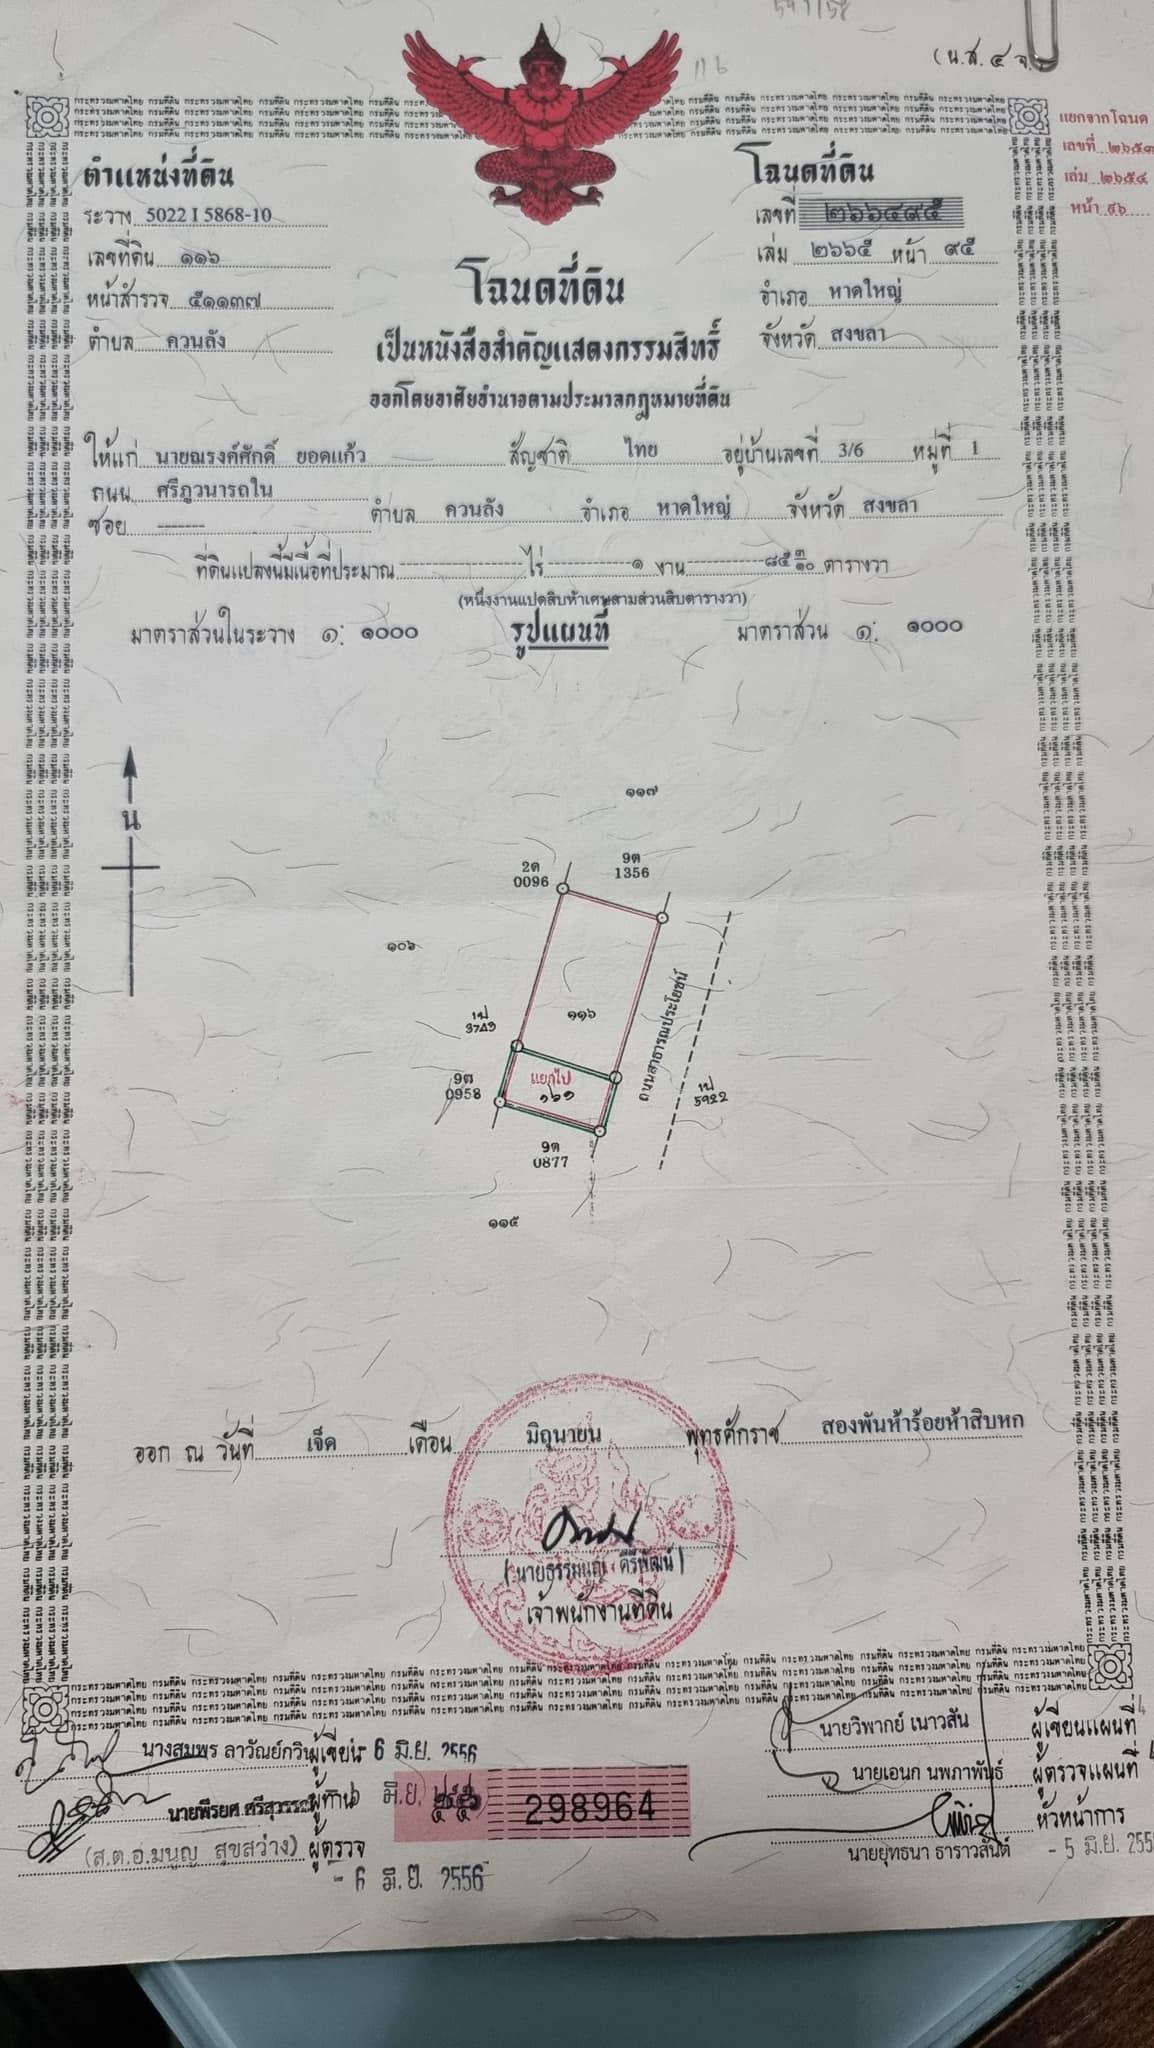 591/58
116
(น.ส. ๔ จ.
แยกจากโฉนด
เลขที่
เล่ม ๒๖๕๔
หน้า ๙๖
ตำแหน่งที่ดิน
ระวาง 5022 I 5868-10
เลขที่ดิน ๑๑๖
หน้าสำรวจ ๕๑๑๓๗
ตำบล ควนลัง
โฉนดที่ดิน
เลขที่ ๒๖๖๔๙๕
เล่ม ๒๖๖๕ หน้า ๙๕
อำเภอ หาดใหญ่
จังหวัด สงขลา
โฉนดที่ดิน
เป็นหนังสือสำคัญแสดงกรรมสิทธิ์
ออกโดยอาศัยอำนาจตามประมวลกฎหมายที่ดิน
ให้แก่ นายณรงค์ศักดิ์ ยอดแก้ว สัญชาติ ไทย อยู่บ้านเลขที่ 3/6 หมู่ที่ 1
ถนน ศรีภูวนารถใน
ซอย ------- ตำบล ควนลัง อำเภอ หาดใหญ่ จังหวัด สงขลา
ที่ดินแปลงนี้มีเนื้อที่ประมาณ ไร่ ๑ งาน ๘๕ ๓/๑๐ ตารางวา
(หนึ่งงานแปดสิบห้าเศษสามส่วนสิบตารางวา)
มาตราส่วนในระวาง ๑: ๑๐๐๐ รูปแผนที่ มาตราส่วน ๑: ๑๐๐๐
น
๑๑๗
2ค
0096
9ต
1356
๑๐๖
๑๑๖
ถนนสาธารณประโยชน์
1ป
9ต
0958
แยกไป
๑๖๑
1ป
5922
9ต
0877
๑๑๕
ออก ณ วันที่ เจ็ด เดือน มิถุนายน พุทธศักราช สองพันห้าร้อยห้าสิบหก
(นายธรรมนูญ คีรีพัฒน์)
เจ้าพนักงานที่ดิน
กระทรวงมหาดไทย กรมที่ดิน
นางสมพร ลาวัณย์กวิน ผู้เขียน - 6 มิ.ย. 2556
นายพีรยศ ผู้ทาน
(ส.ต.อ.มนูญ สุขสว่าง) ผู้ตรวจ
- 6 มิ.ย. 2556
298964
นายวิพากย์ เนาวสัน ผู้เขียนแผนที่
นายเอนก นพภาพันธ์ ผู้ตรวจแผนที่
หัวหน้าการ
นายยุทธนา ธาราวสันต์ - 5 มิ.ย. 255